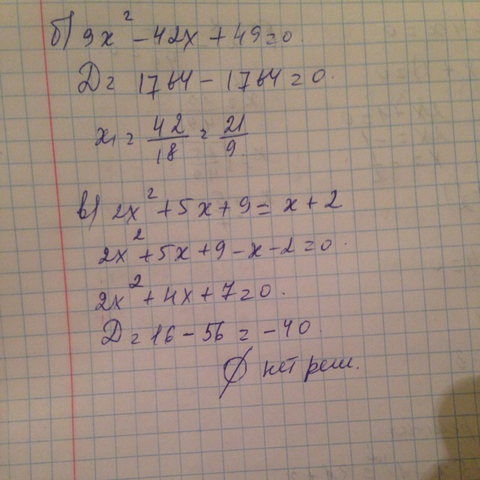 б) 9x² - 42x + 49 = 0.
D = 1764 - 1764 = 0.
x₁ = 42/18 = 21/9
в) 2x² + 5x + 9 = x + 2
2x² + 5x + 9 - x - 2 = 0.
2x² + 4x + 7 = 0.
D = 16 - 56 = -40.
∅ нет реш.